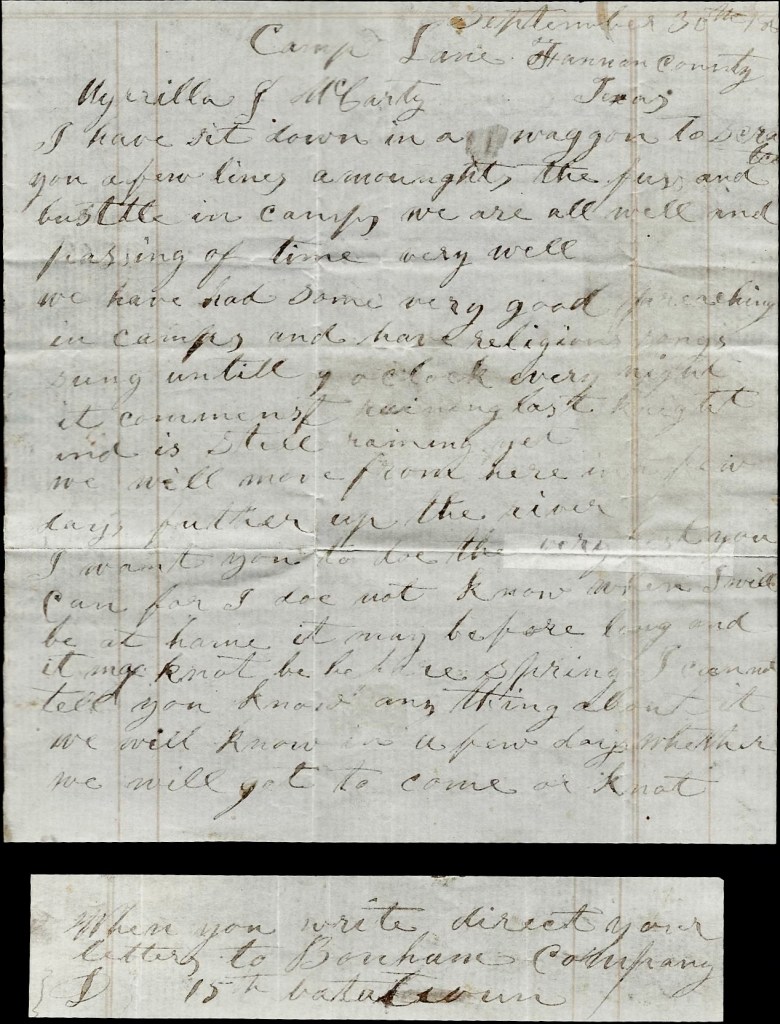 September 30th 18
Camp Lane Fannon County
Myerilla J McCarty Texas
I have sit down in a waggon to
you a few lines amounghts the fuss and
busttle in camps we are all well and
passing of time very well
we have had some very good preaching
in camps and have religious songs
sung untill 9 o clock every night
it commenst raining last knight
and is still raining yet
we will move from here in a few
days futher up the river
I want you to doe the very best you
can for I doe not know when I will
be at home it may be fore long and
it may knot be be fore spring I can not
tell you know any thing about it
we will know in a few days whether
we will got to come or knot
When you write direct your
letters to Bonham Company
I 15th batatioun